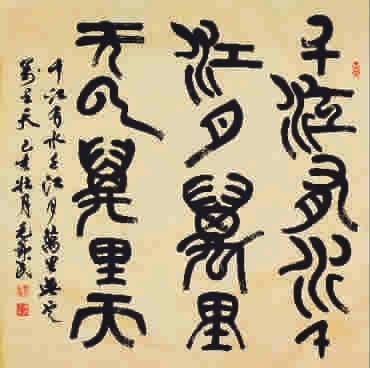 千江有水千
江月萬里
无云萬里天
千江有水千江月萬里無雲
萬里天 己亥壮月